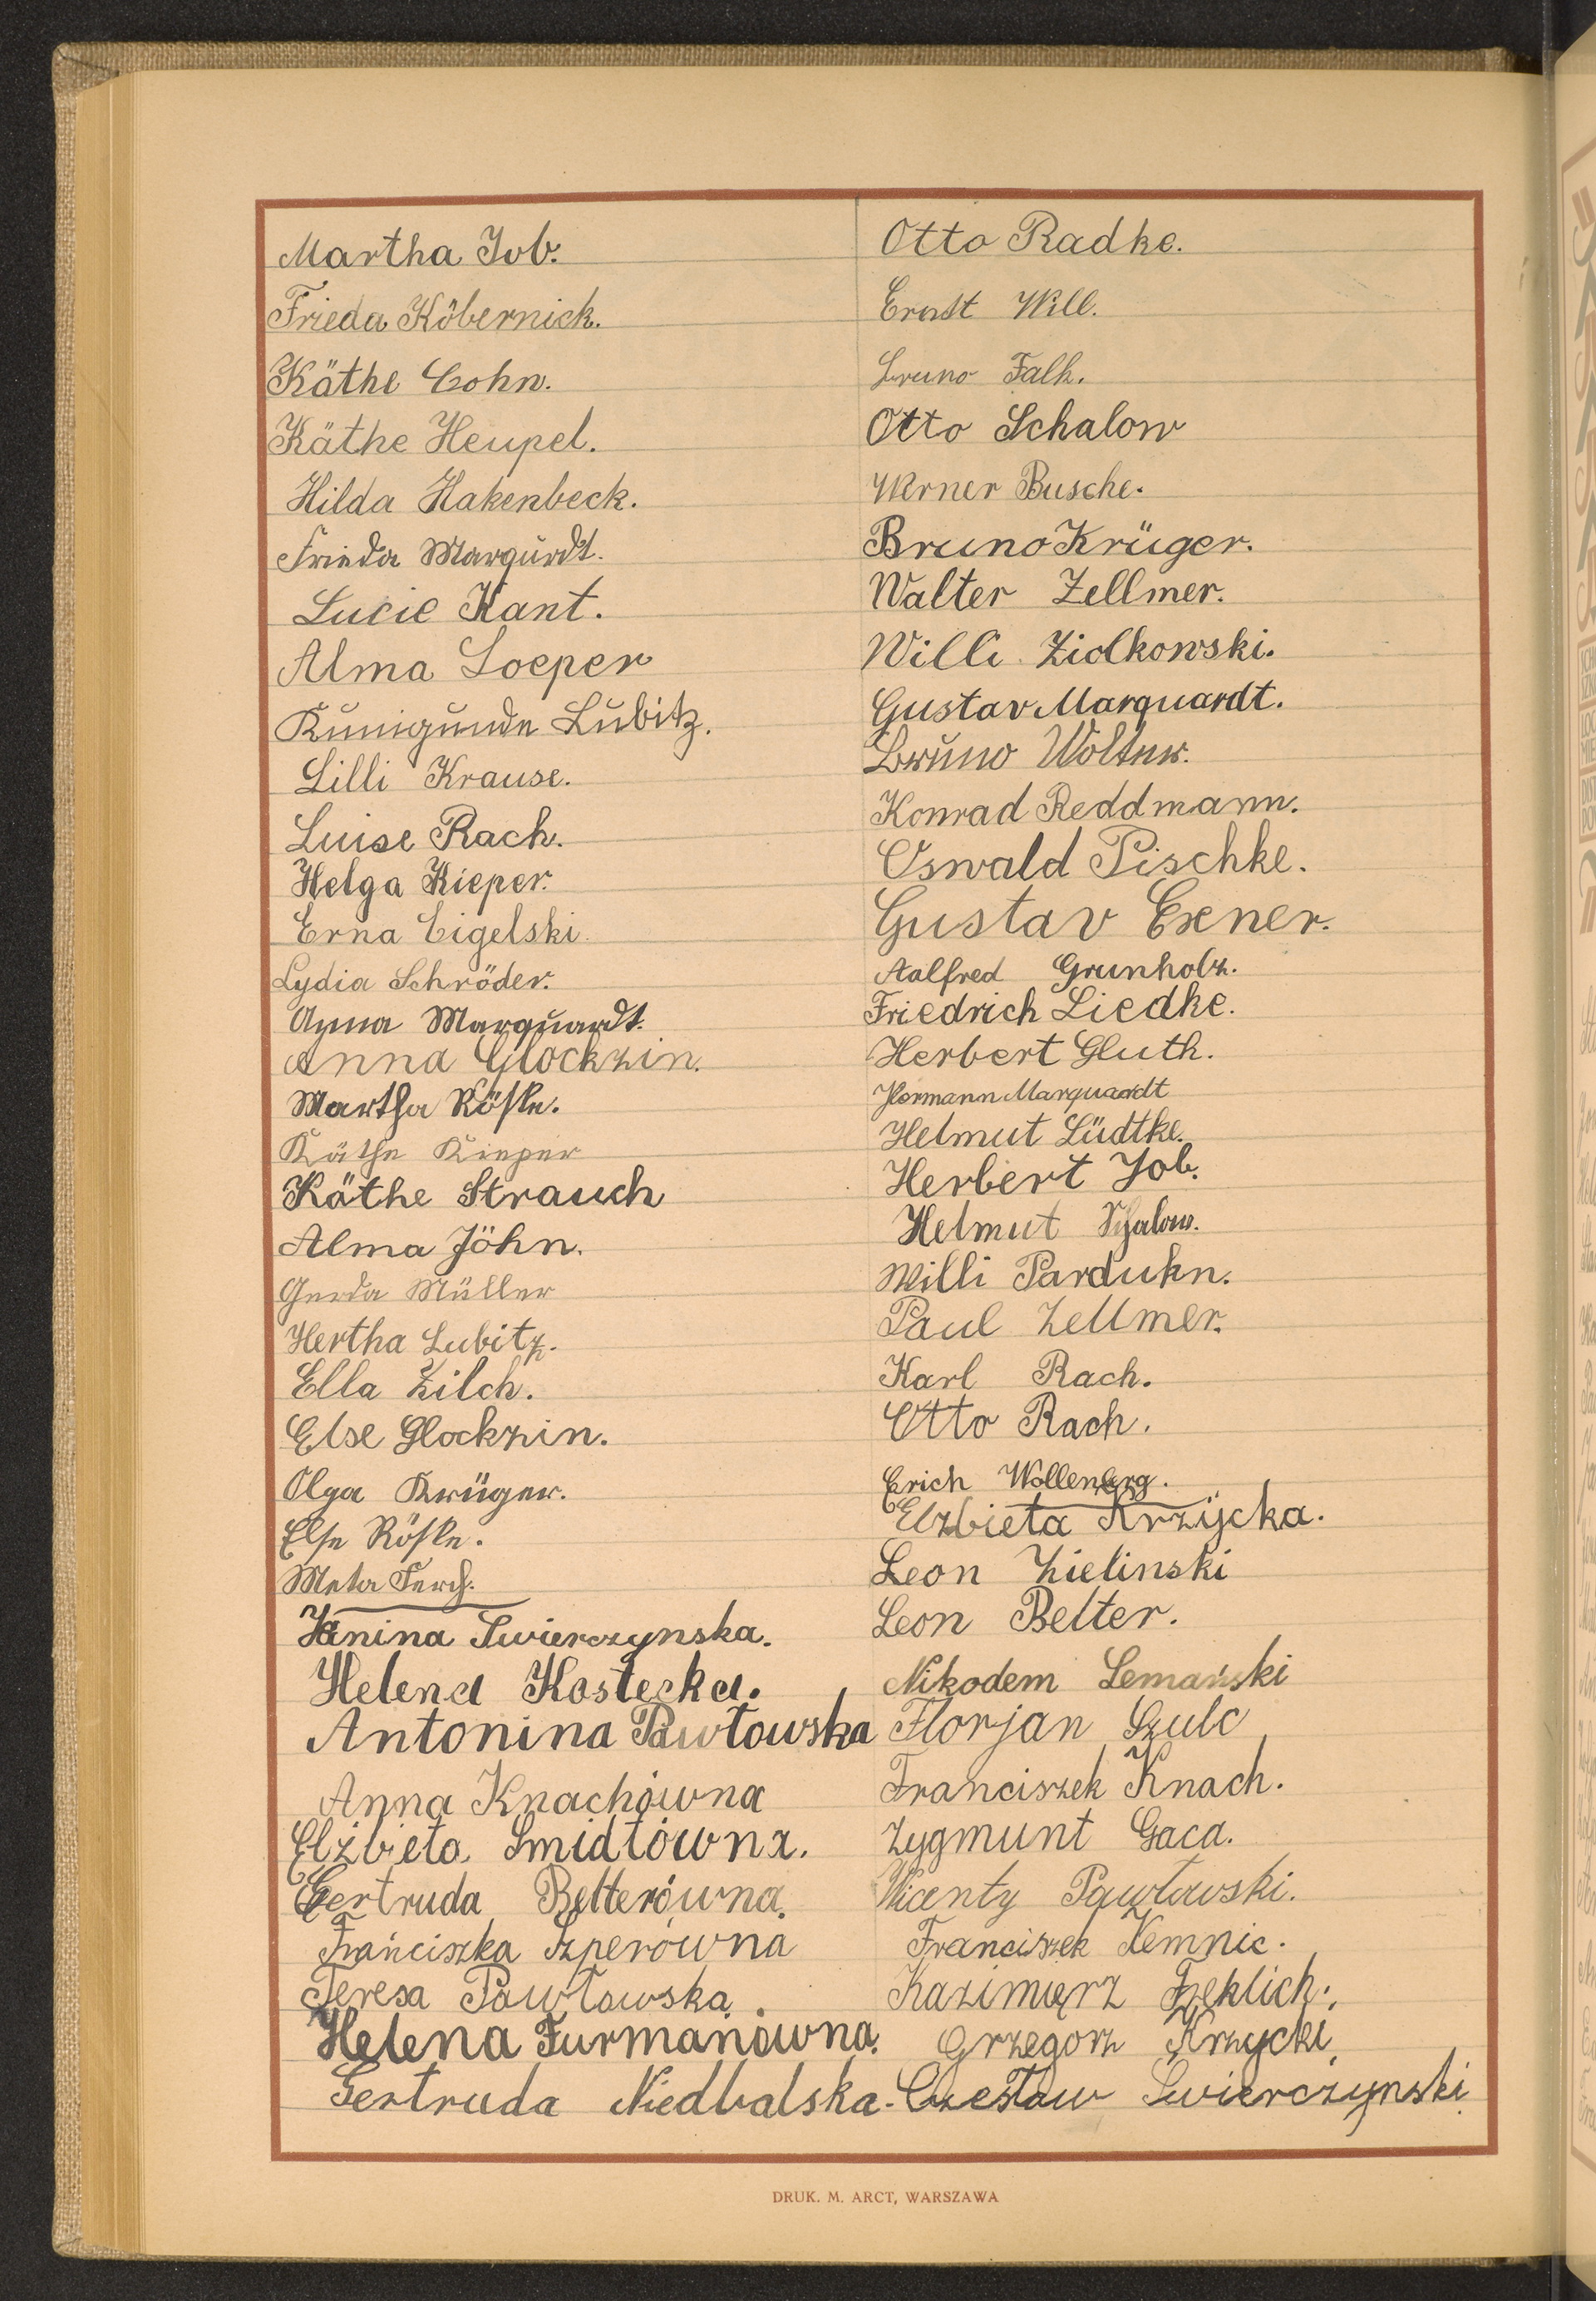 Martha Job.
Frieda Köbernick.
Käthe Cohn.
Käthe Heupel.
Hilda Hakenbeck.
Frieda Marqurdt.
Lucie Kant.
Alma Loeper
Kunigunde Lubitz.
Lilli Krause.
Luise Rach.
Helga Kieper.
Erna Cigelski.
Lydia Schröder.
Anna Marquardt.
Anna Glockzin.
Martha Röske.
Käthe Kieper
Käthe Strauch
Alma Jöhn.
Gerda Müller
Hertha Lubitz.
Ella Zilch.
Else Glockzin.
Olga Krüger.
Else Röske.
Meta Ferch.
Janina Swierczynska.
Helena Kostecka.
Antonina Pawłowska
Anna Knachówna
Elżbieta Smidtówna.
Gertruda Belterówna.
Franciszka Szperówna
Teresa Pawłowska.
Helena Furmanówna.
Gertruda Niedbalska.
Otto Radke.
Ernst Will.
Bruno Falk.
Otto Schalow
Werner Busche.
Bruno Krüger.
Walter Zellmer.
Willi Ziolkowski.
Gustav Marquardt.
Bruno Wolter.
Konrad Reddmann.
Oswald Pischke.
Gustav Exner.
Aalfred Grunholz.
Friedrich Liedke.
Herbert Gluth.
Hermann Marquardt
Helmut Lüdtke.
Herbert Job.
Helmut Schalow.
Willi Pardukn.
Paul Zellmer.
Karl Rach.
Otto Rach.
Erich Wollenberg.
Elzbieta Krzÿcka.
Leon Zielinski
Leon Belter.
Nikodem Lemański
Florjan Szulc
Franciszek Knach.
Zygmunt Gaca.
Wicenty Pawłowski.
Franciszek Kemnic.
Kazimierz
Grzegorz Krzycki
Czesław Swierczynski
DRUK. M. ARCT, WARSZAWA